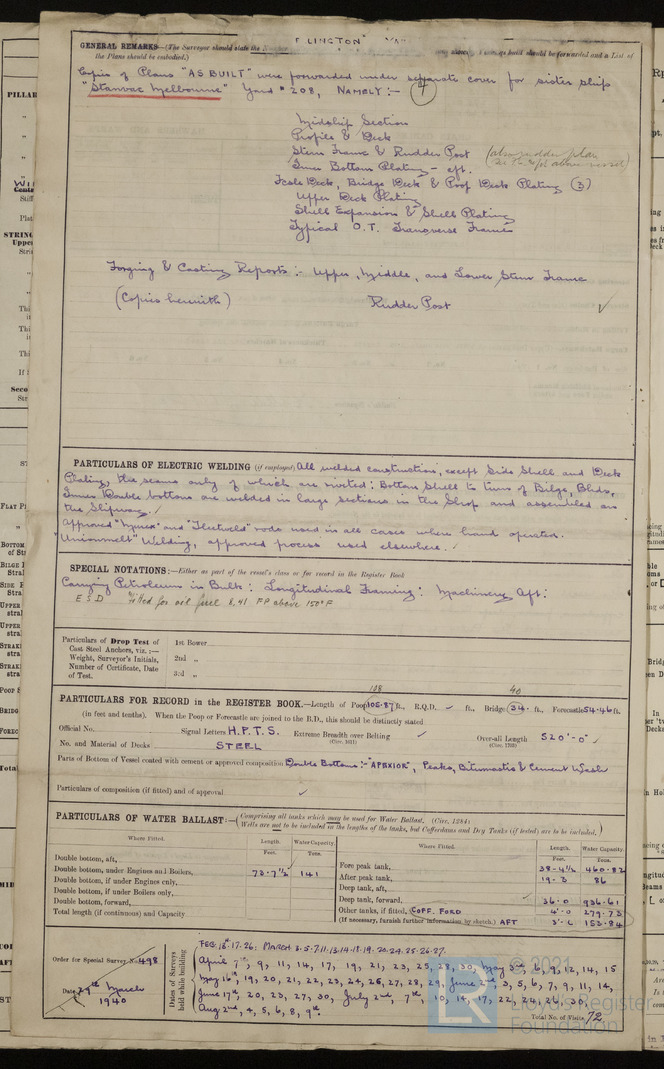 GENERAL REMARKS—(The Surveyor should state the
the Plans should be embodied.)
Copies of Plans "AS BUILT" were forwarded under separate cover for sister ship
"Stanvac Melbourne" Yard # 208, NAMELY:- 4
Midship Section
Profile & Deck
Stern Frame & Rudder Post (also rudder plan
Inner Bottom Plating - aft.
Fcsle Deck, Bridge Deck & Poop Deck Plating (3)
Upper Deck Plating
Shell Expansion & Shell Plating
Typical O.T. Transverse Frames
Forging & Casting Reports:- Upper, Middle, and Lower Stern Frame
(Copies herewith) Rudder Post
PARTICULARS OF ELECTRIC WELDING (if employed) All welded construction, except Side Shell and Deck
Plating, the seams only of which are riveted; Bottom Shell to turn of Bilge, Blhds,
Inner Double bottoms are welded in large sections in the Shop and assembled on
the Slipway.
Approved "Murex" and "Fleetweld" rods used in all cases where hand operated.
"Unionmelt" Welding, approved process used elsewhere.
SPECIAL NOTATIONS:—Either as part of the vessel's class or for record in the Register Book
Carrying Petroleum in Bulk: Longitudinal Framing: Machinery Aft:
ESD Fitted for oil fuel 8,41 FP above 150°F
Particulars of Drop Test of
Cast Steel Anchors, viz.:—
Weight, Surveyor's Initials,
Number of Certificate, Date
of Test.
1st Bower
2nd „
3rd „
108 40
PARTICULARS FOR RECORD in the REGISTER BOOK.—Length of Poop 105.87 ft., R.Q.D. ft., Bridge 34. ft., Forecastle 54.46 ft.
(in feet and tenths). When the Poop or Forecastle are joined to the B.D., this should be distinctly stated
Official No. Signal Letters H.P.T.S. Extreme Breadth over Belting (Circ. 1611) Over-all Length (Circ. 1703) 520'-0"
No. and Material of Decks STEEL
Parts of Bottom of Vessel coated with cement or approved composition Double Bottoms:- "APEXIOR", Peaks, Bitumastic & Cement Wash
Particulars of composition (if fitted) and of approval
PARTICULARS OF WATER BALLAST:—(Comprising all tanks which may be used for Water Ballast. (Circ. 1284)
Wells are not to be included in the lengths of the tanks, but Cofferdams and Dry Tanks (if tested) are to be included.)
Where Fitted. Length. Water Capacity.
Feet. Tons.
Double bottom, aft,
Double bottom, under Engines and Boilers, 73-7½ 141
Double bottom, if under Engines only,
Double bottom, if under Boilers only,
Double bottom, forward,
Total length (if continuous) and Capacity
Where Fitted. Length. Water Capacity.
Feet. Tons.
Fore peak tank, 38-4½ 460.82
After peak tank, 19-3 86
Deep tank, aft,
Deep tank, forward, 36.0 936.61
Other tanks, if fitted, COFF. FORD 4'.0 279.73
(If necessary, furnish further information by sketch.) AFT 3'-6 153.84
Order for Special Survey No. 498
Date 29th March
1940
Dates of Surveys
held while building
FEB. 13.17.26; MARCH 3.5.7.11.13.14.18.19.20.24.25.26.27.
April 7th, 9, 11, 14, 17, 19, 21, 23, 25, 28, 30, May 3rd, 6, 9, 12, 14, 15
May 16th, 19, 20, 21, 22, 23, 24, 26, 27, 28, 29, June 2nd, 3, 5, 6, 7, 9, 11, 14,
June 17th, 20, 23, 27, 30, July 2nd, 7th, 10, 14, 17, 22, 24, 26, 30,
Aug 2nd, 4, 5, 6, 8, 9th.
Total No. of Visits 72
© 2021
Lloyd's Register
Foundation